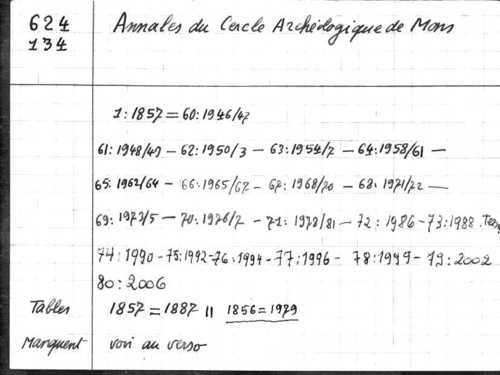 624 Annales du Cercle Archéologique de Mons
134
1:1857=60:1946/47
61:1948/49 – 62:1950/3 – 63:1954/7 – 64:1958/61 –
65:1962/64 – 66:1965/67 – 67:1968/70 – 68:1971/72 –
69:1973/5 – 70:1976/7 – 71:1978/81 – 72:1986 – 73:1988
74:1990 – 75:1992 – 76:1994 – 77:1996 – 78:1999 – 79:2002
80:2006
Tables 1857=1887 || 1856=1979
Manquent voir au verso